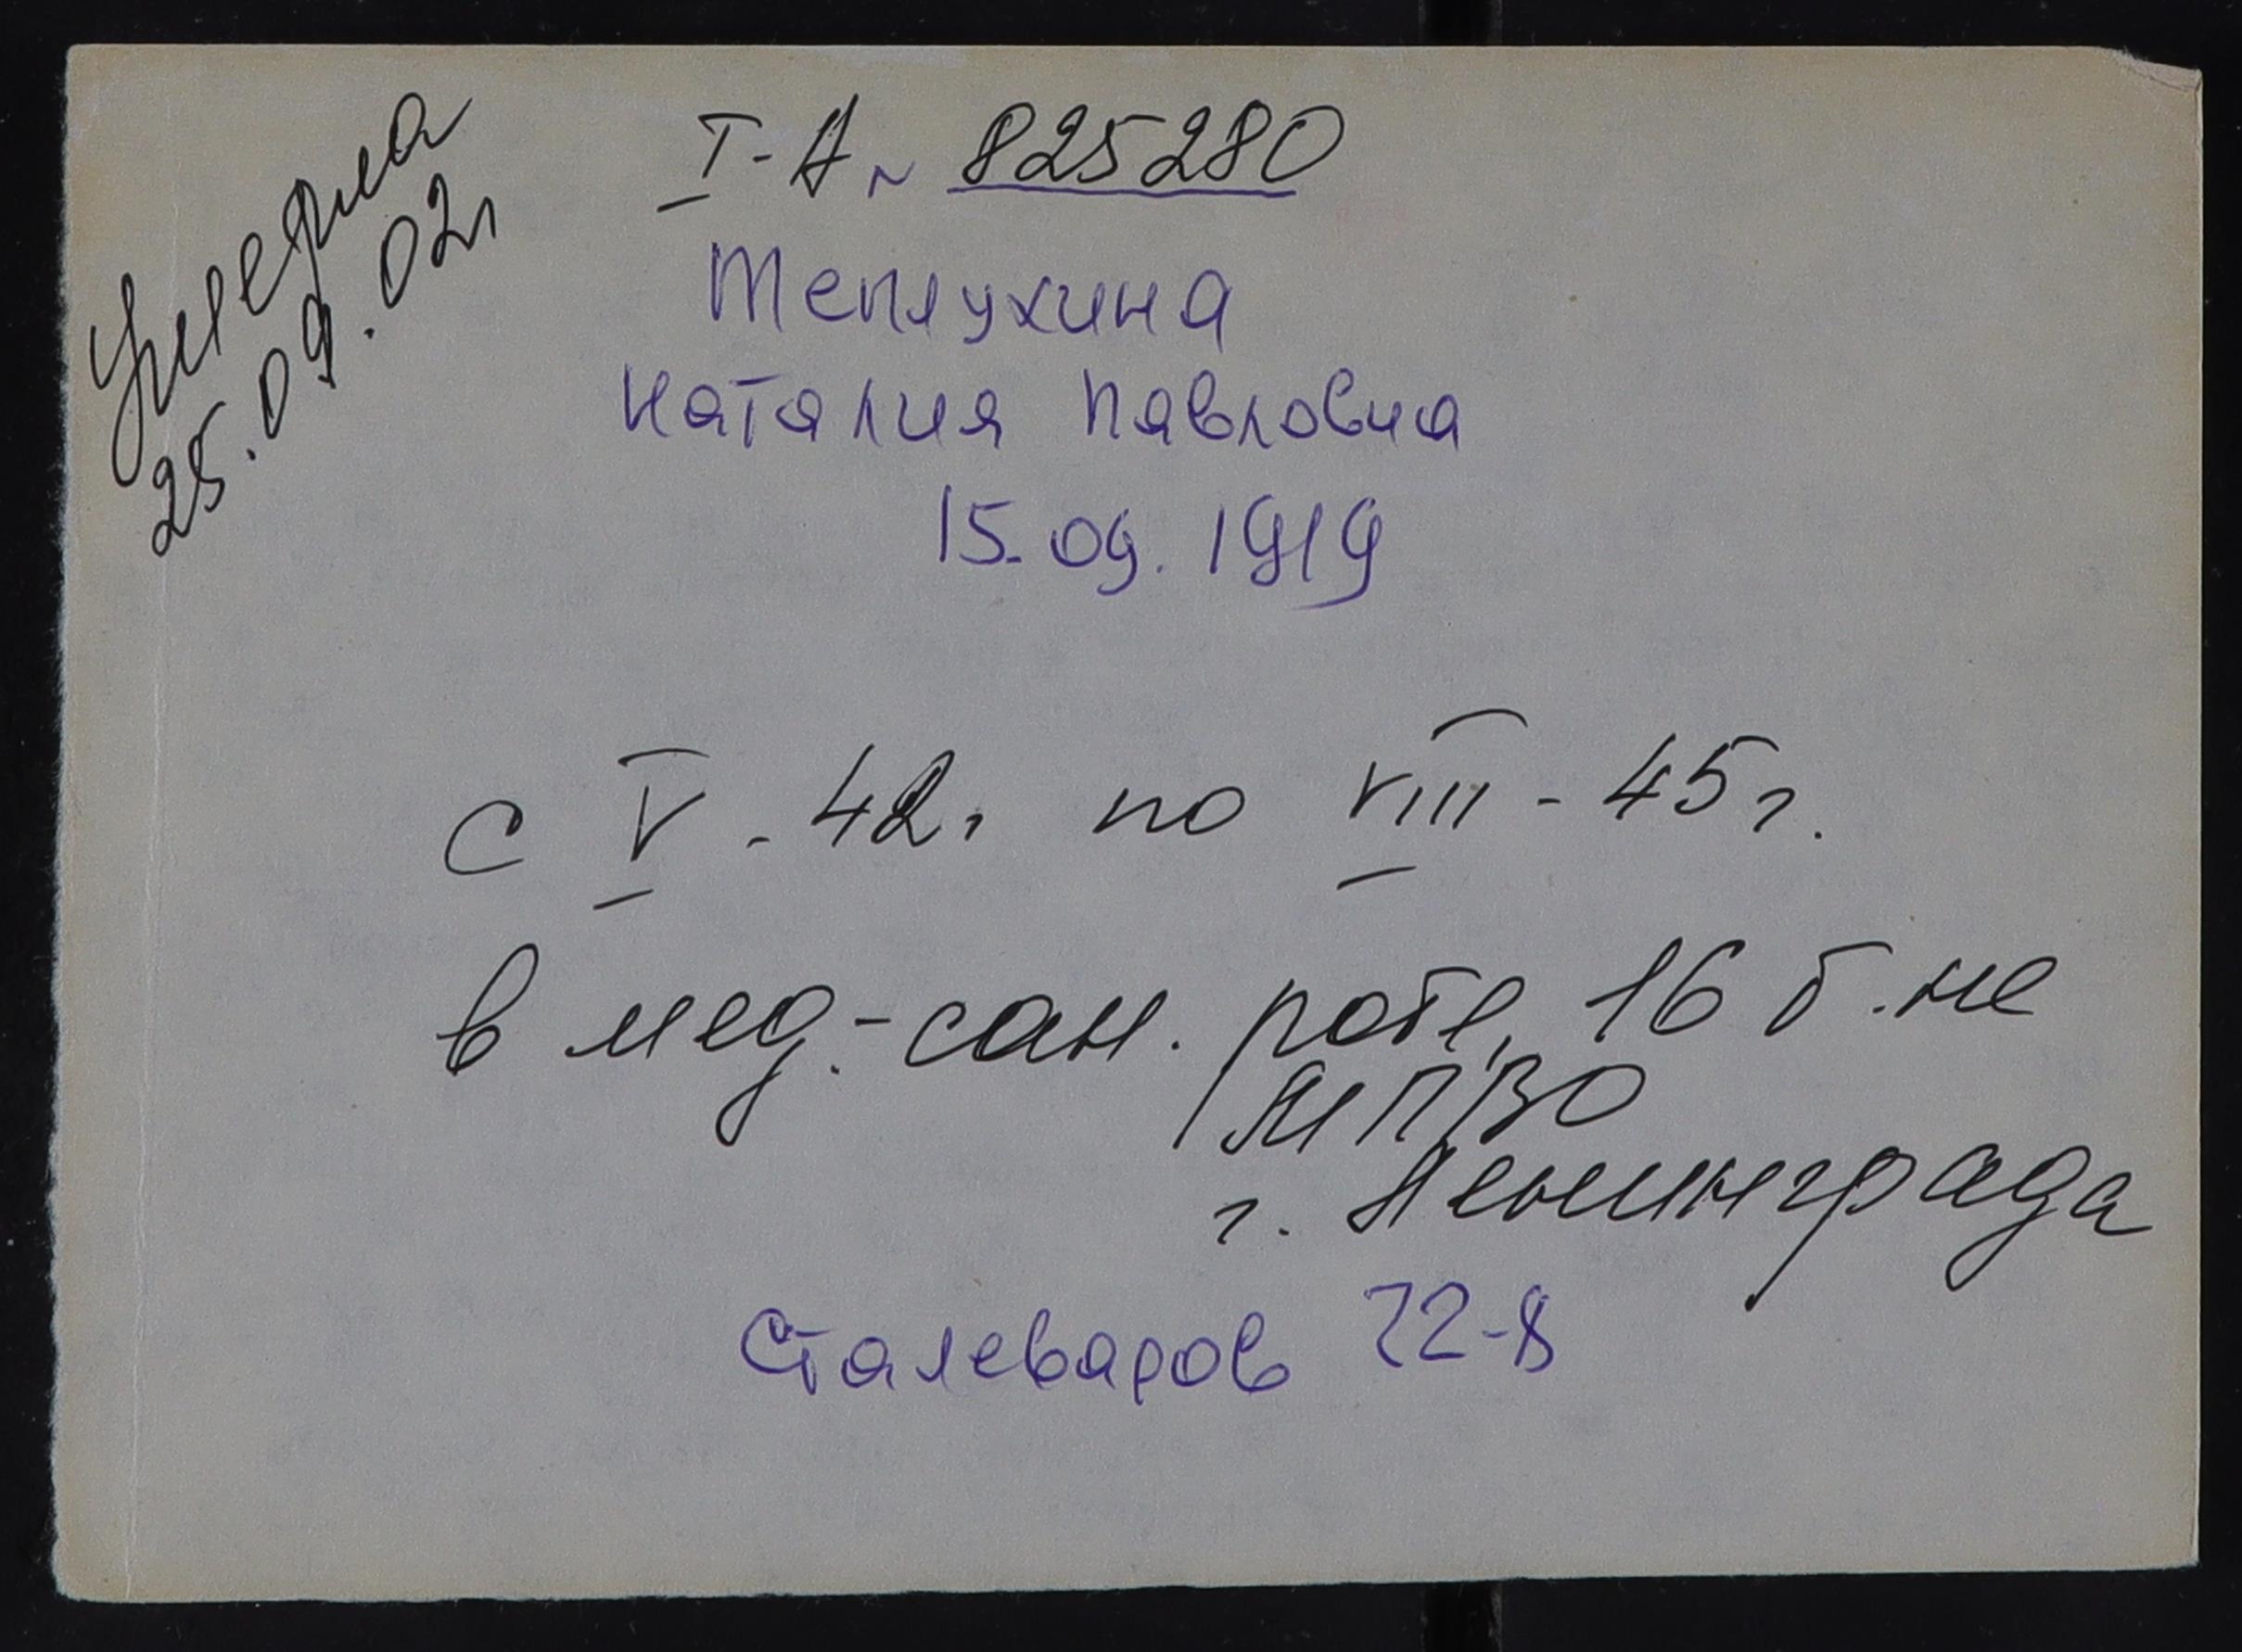 Умерла
25.09.02г
I-А N 825280
Теплухина
Наталия Павловна
15.09.1919
с V-42г по VIII-45г.
в мед.-сан. роте, 16 б.не
МПВО
г. Ленинграда
Сталеваров 22-8